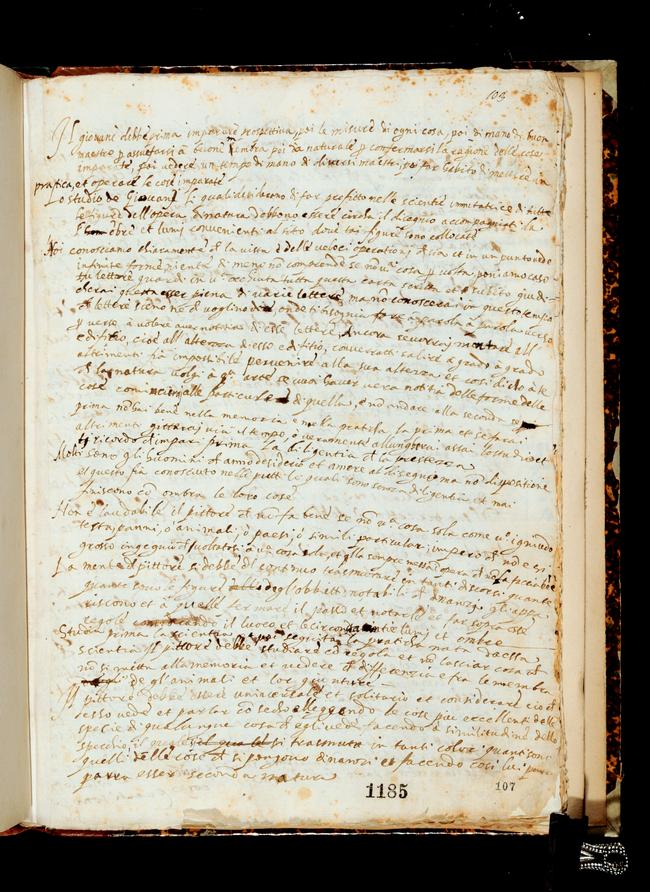 103
Il giovane debbe prima imparare prospettiva, poi le misure di ogni cosa, poi di mano di buon
maestro p assuefarsi à buone membra poi da naturale p confermarsi la ragione delle cose
imparate, poi vedere un tempo di mano di diversi maestri, poi far habito di mettere in
pratica, et operare le cose imparate
Lo studio de Giovani li quali desiderano di far profitto nelle scientie immitatrice di tutte
le figure dell opere di natura debbono essere circha il disegno accompagnati la
ombre et lumj convenienti al sito dove tai figure sono collocate
Noi conosciamo chiaramente la vista è delle veloci operationj ch sia et in un punto vede
infinite forme niente di meno nò comprende se nò vi cosa p volta poniamo caso
tu lettore guardi in tutta questa carta scritta et subito giudi-
cherai questa esser piena di varie lettere, ma nò conoscerai in questo tempo
lettere sieno ne ch voglino dire, onde ti bisogna fare à parola à parola verso
p verso à volere aver notitia di esse lettere, Ancora se vorrai montare all
edifitio, cioè all altezza di esso edifitio, converratti salire à grado à grado
altrimenti fia impossibile pervenire alla sua altezza et cosi dicho à te
natura volgi à qu arte se vuoi haver vera notitia delle forme delle
cose comincierai alle particule di quelle, e nò andare alla seconda se
prima nò hai bene nella memoria e nella pratica la prima et se farai
altrimenti gitterai via il tempo, o veramente allungherai assai lo studio et
ti ricordo ch impari prima la diligentia ch la prestezza
Molti sono gli huomini ch anno desiderio et amore al disegno ma nò dispositione
et questo fia conosciuto nelli putti le quali sono senza diligentia et mai
finiscono cò ombra le loro cose
Non è laudabile il pittore ch nò fa bene se nò una cosa sola come uno ignudo
testa panni, ò animali, ò paesi, ò simili particulari, imperò ch nò è si
grosso ingegno ch voltatosi à una cosa sola, et quella sempre messa in opera ch nò la faccia bene
La mente d pittore si debbe di continuo trasmutare in tanti discorsi quante
figure degl obbietti notabili ch dinanzi gli appa-
riscono et à quelle fermare il passo et notarle et far sopra esse
regole il luoco et le circonstantie lumj et ombre
Studia prima la scientia, e poi seguita la pratica nata da essa
scientia il pittore debbe studiare cò regola et nò lasciar cosa ch
nò si metta alla memoria et vedere ch differenzia è fra le membra
de gli animali et lor giunture
Il pittore debbe essere universale et solitario et considerare ciò ch
esso vede et parlar cò seco elleggendo le cose piu eccellenti delle
spezie di qualunque cosa ch egli vede facendo à similitudine dello
specchio, il quale si trasmuta in tanti colori quanti sono
quelli delle cose ch si pongono dinanzi et facendo cosi lui
parra esser seconda natura
1185
107